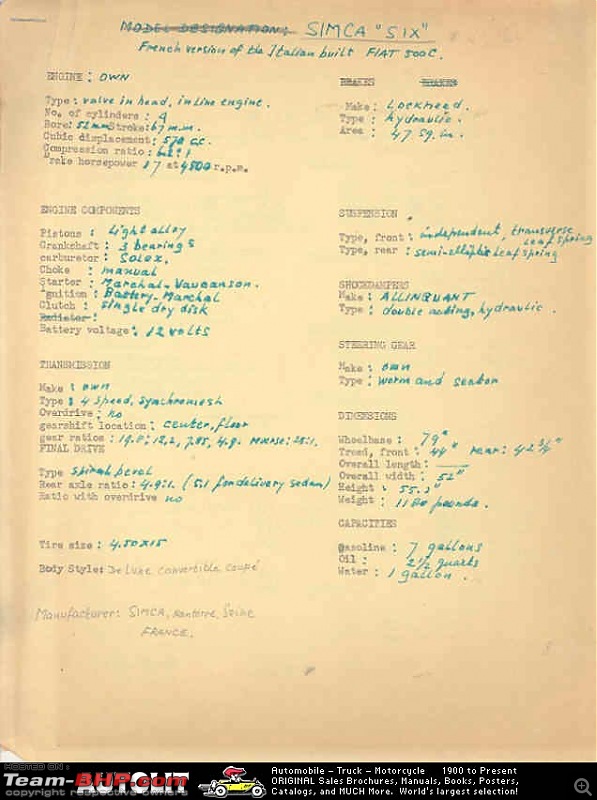 MODEL DESIGNATION: SIMCA "SIX"
French version of the Italian built FIAT 500C.
ENGINE: OWN
Type: valve in head, in line engine.
No. of cylinders: 4
Bore: 52mm Stroke: 67 m.m.
Cubic displacement: 570 cc.
Compression ratio:
Brake horsepower 17 at 4500 r.p.m.
BRAKES
Make: Lockheed.
Type: hydraulic.
Area: 47 sq. in.
ENGINE COMPONENTS
Pistons: light alloy
Crankshaft: 3 bearings
carburetor: SOLEX.
Choke: manual
Starter: Marchal-Vaucanson.
Ignition: Battery-Marchal
Clutch: single dry disk
Radiator:
Battery voltage: 12 volts
SUSPENSION
Type, front: independent, transverse
leaf spring
Type, rear: semi-elliptic leaf spring
SHOCKDAMPERS
Make: ALLINQUANT
Type: double acting, hydraulic.
STEERING GEAR
Make: own
Type: worm and sector
TRANSMISSION
Make: own
Type: 4 speed, synchromesh
Overdrive: no
gearshift location: center, floor
gear ratios: 12.2, 7.85, 4.9. Reverse: 25:1.
FINAL DRIVE
Type spiral bevel
Rear axle ratio: 4.9:1. (5:1 for delivery sedan)
Ratio with overdrive no
DIMENSIONS
Wheelbase: 79"
Tread, front: 44" rear: 42 3/4"
Overall length:
Overall width: 52"
Height: 55.
Weight: pounds.
CAPACITIES
Gasoline: 7 gallons
Oil: 2 1/2 quarts
Water: 1 gallon.
Tire size: 4.50x15
Body Style: De Luxe convertible coupé
Manufacturer: SIMCA, Nanterre, Seine
FRANCE.
HOSTED ON:
Team-BHP.com
copyright respective owners
AUTOLIT
Automobile - Truck - Motorcycle 1900 to Present
ORIGINAL Sales Brochures, Manuals, Books, Posters,
Catalogs, and MUCH More. World's largest selection!